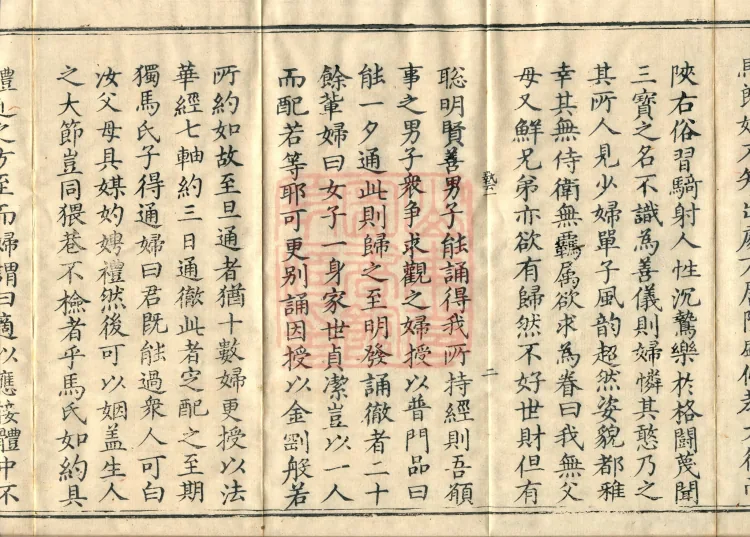 陝右俗習騎射人性沉鷙樂扵格鬪蔑聞
三寳之名不識為善儀則婦憐其憨乃之
其所人見少婦單孑風韵超然姿貌都雅
幸其無侍衛無羈属欲求為眷曰我無父
母又鮮兄弟亦欲有歸然不好世財但有
聦明賢善男子能誦得我所持經則吾願
事之男子衆争求觀之婦授以普門品曰
能一夕通此則歸之至明發誦徹者二十
餘輩婦曰女子一身家世貞潔豈以一人
而配若等耶可更别誦因授以金剛般若
所約如故至旦通者猶十數婦更授以法
華經七軸約三日通徹此者定配之至期
獨馬氏子得通婦曰君既能過衆人可白
汝父母具媒妁娉禮然後可以姻盖生人
之大節豈同猥巷不檢者乎馬氏如約具
禮迎之方至而婦謂曰適以應接體中不
二